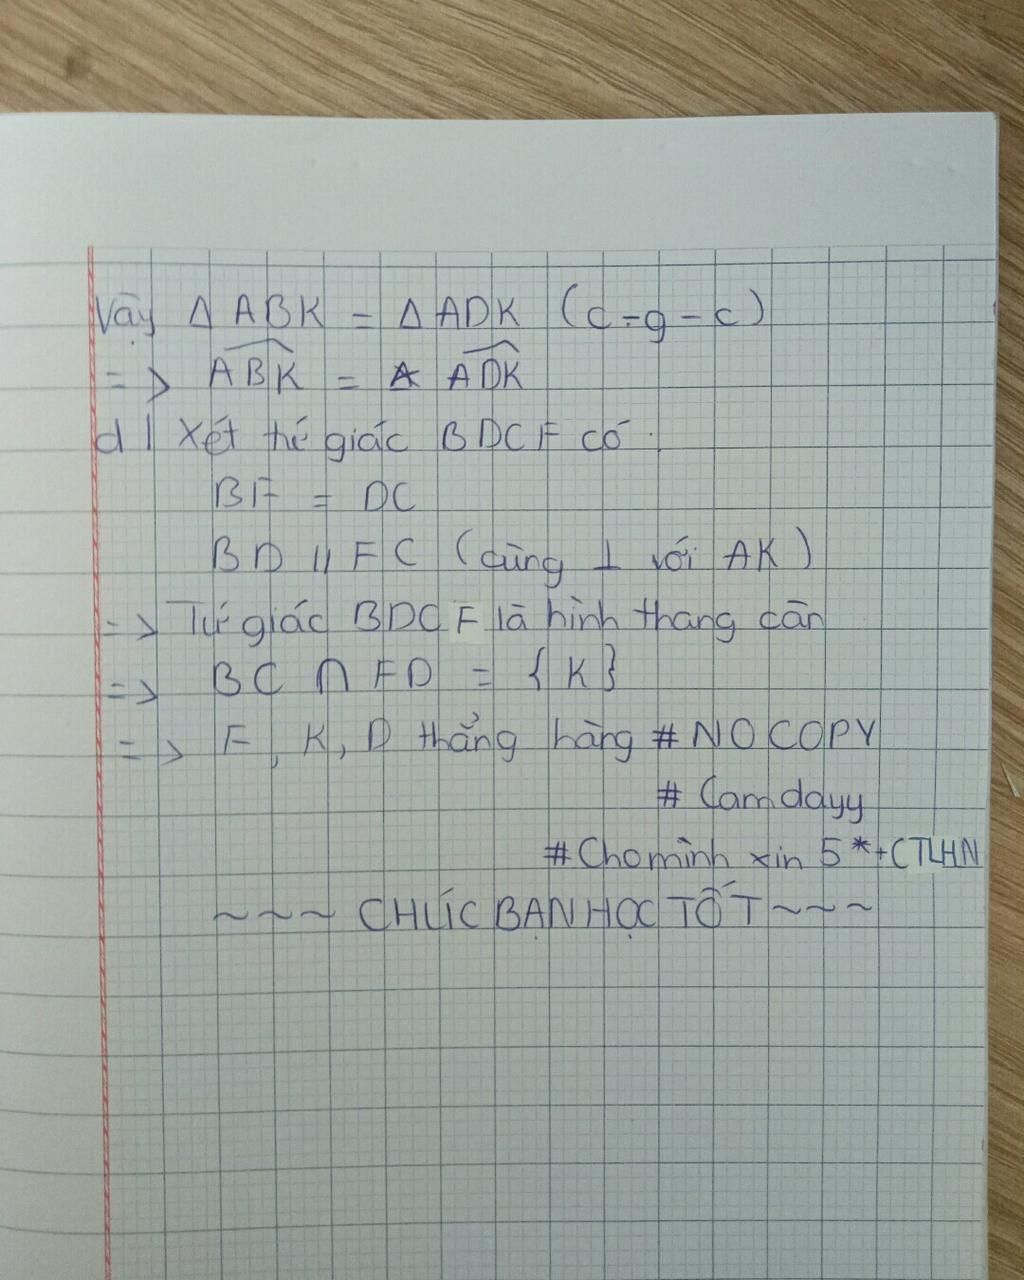 Vậy Δ ABK = Δ ADK (c-g-c)
=> ABK = A ADK
d) Xét tứ giác BDCF có:
BF = DC
BD // FC (cùng ⊥ với AK)
=> Tứ giác BDCF là hình thang cân
=> BC ∩ FD = {K}
=> F, K, D thẳng hàng #NO COPY
# Camdayy
#Cho mình xin 5*+CTLHN
~~~ CHÚC BẠN HỌC TỐT ~~~